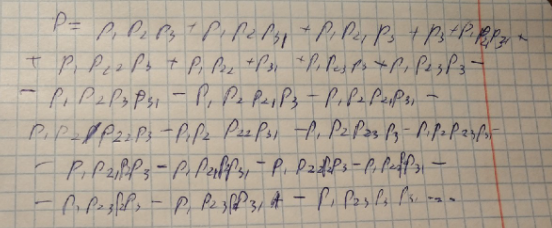 P = P₁ P₂ P₃ + P₁ P₂ P₃₁ + P₁ P₂₁ P₃ + P₃ + P₁ P₂₁ P₃₁ +
+ P₁ P₂₂ P₃ + P₁ P₂₂ + P₃₁ + P₁ P₂₃ P₃ + P₁ P₂₃ P₃ –
– P₁ P₂ P₃ P₃₁ – P₁ P₂ P₂₁ P₃ – P₁ P₂ P₂₁ P₃₁ –
P₁ P₂ P₂₂ P₃ – P₁ P₂ P₂₂ P₃₁ – P₁ P₂ P₂₃ P₃ – P₁ P₂ P₂₃
– P₁ P₂₁ P₃ – P₁ P₂₁ P₃₁ – P₁ P₂₂ P₃ – P₁ P₂₂ P₃₁ –
– P₁ P₂₃ P₃ – P₁ P₂₃ P₃₁ – P₁ P₂₃ P₃ ...